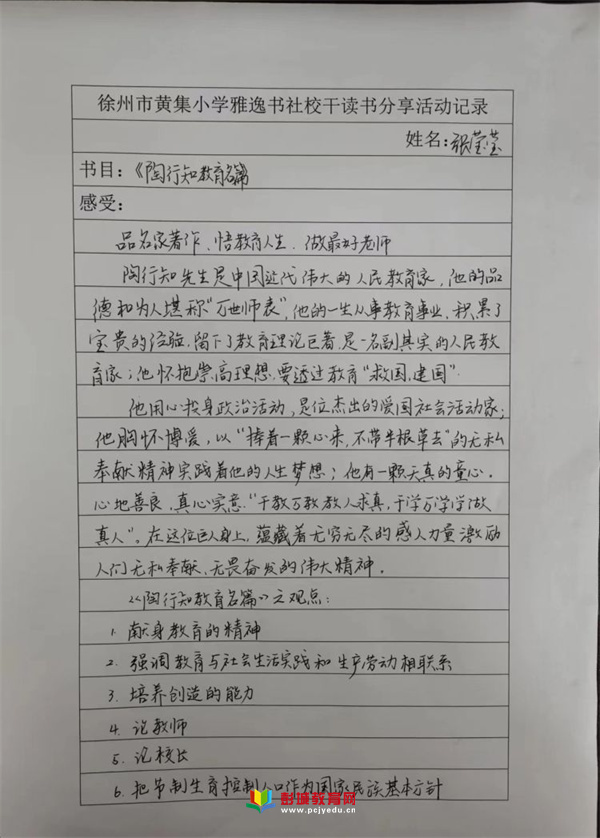 徐州市黄集小学雅逸书社校干读书分享活动记录
姓名:张莹莹
书目:《陶行知教育名篇
感受:
品名家著作、悟教育人生、做最好老师
陶行知先生是中国近代伟大的人民教育家,他的品
德和为人堪称“万世师表”,他的一生从事教育事业、积累了
宝贵的经验,留下了教育理论巨著,是一名副其实的人民教
育家;他怀抱崇高理想,要透过教育“救国,建国”
他用心投身政治活动,是位杰出的爱国社会活动家;
他胸怀博爱,以“捧着一颗心来,不带半根草去”的无私
奉献精神实践着他的人生梦想;他有一颗天真的童心。
心地善良,真心实意:“千教万教教人求真,千学万学学做
真人”。在这位巨人身上,蕴藏着无穷无尽的感人力量激励
人们无私奉献、无畏奋发的伟大精神。
《陶行知教育名篇》之观点:
1. 献身教育的精神
2. 强调教育与社会生活实践和生产劳动相联系
3. 培养创造的能力
4. 论教师
5. 论校长
6. 把节制生育控制人口作为国家民族基本方针
彭城教育网
www.pcjyedu.cn